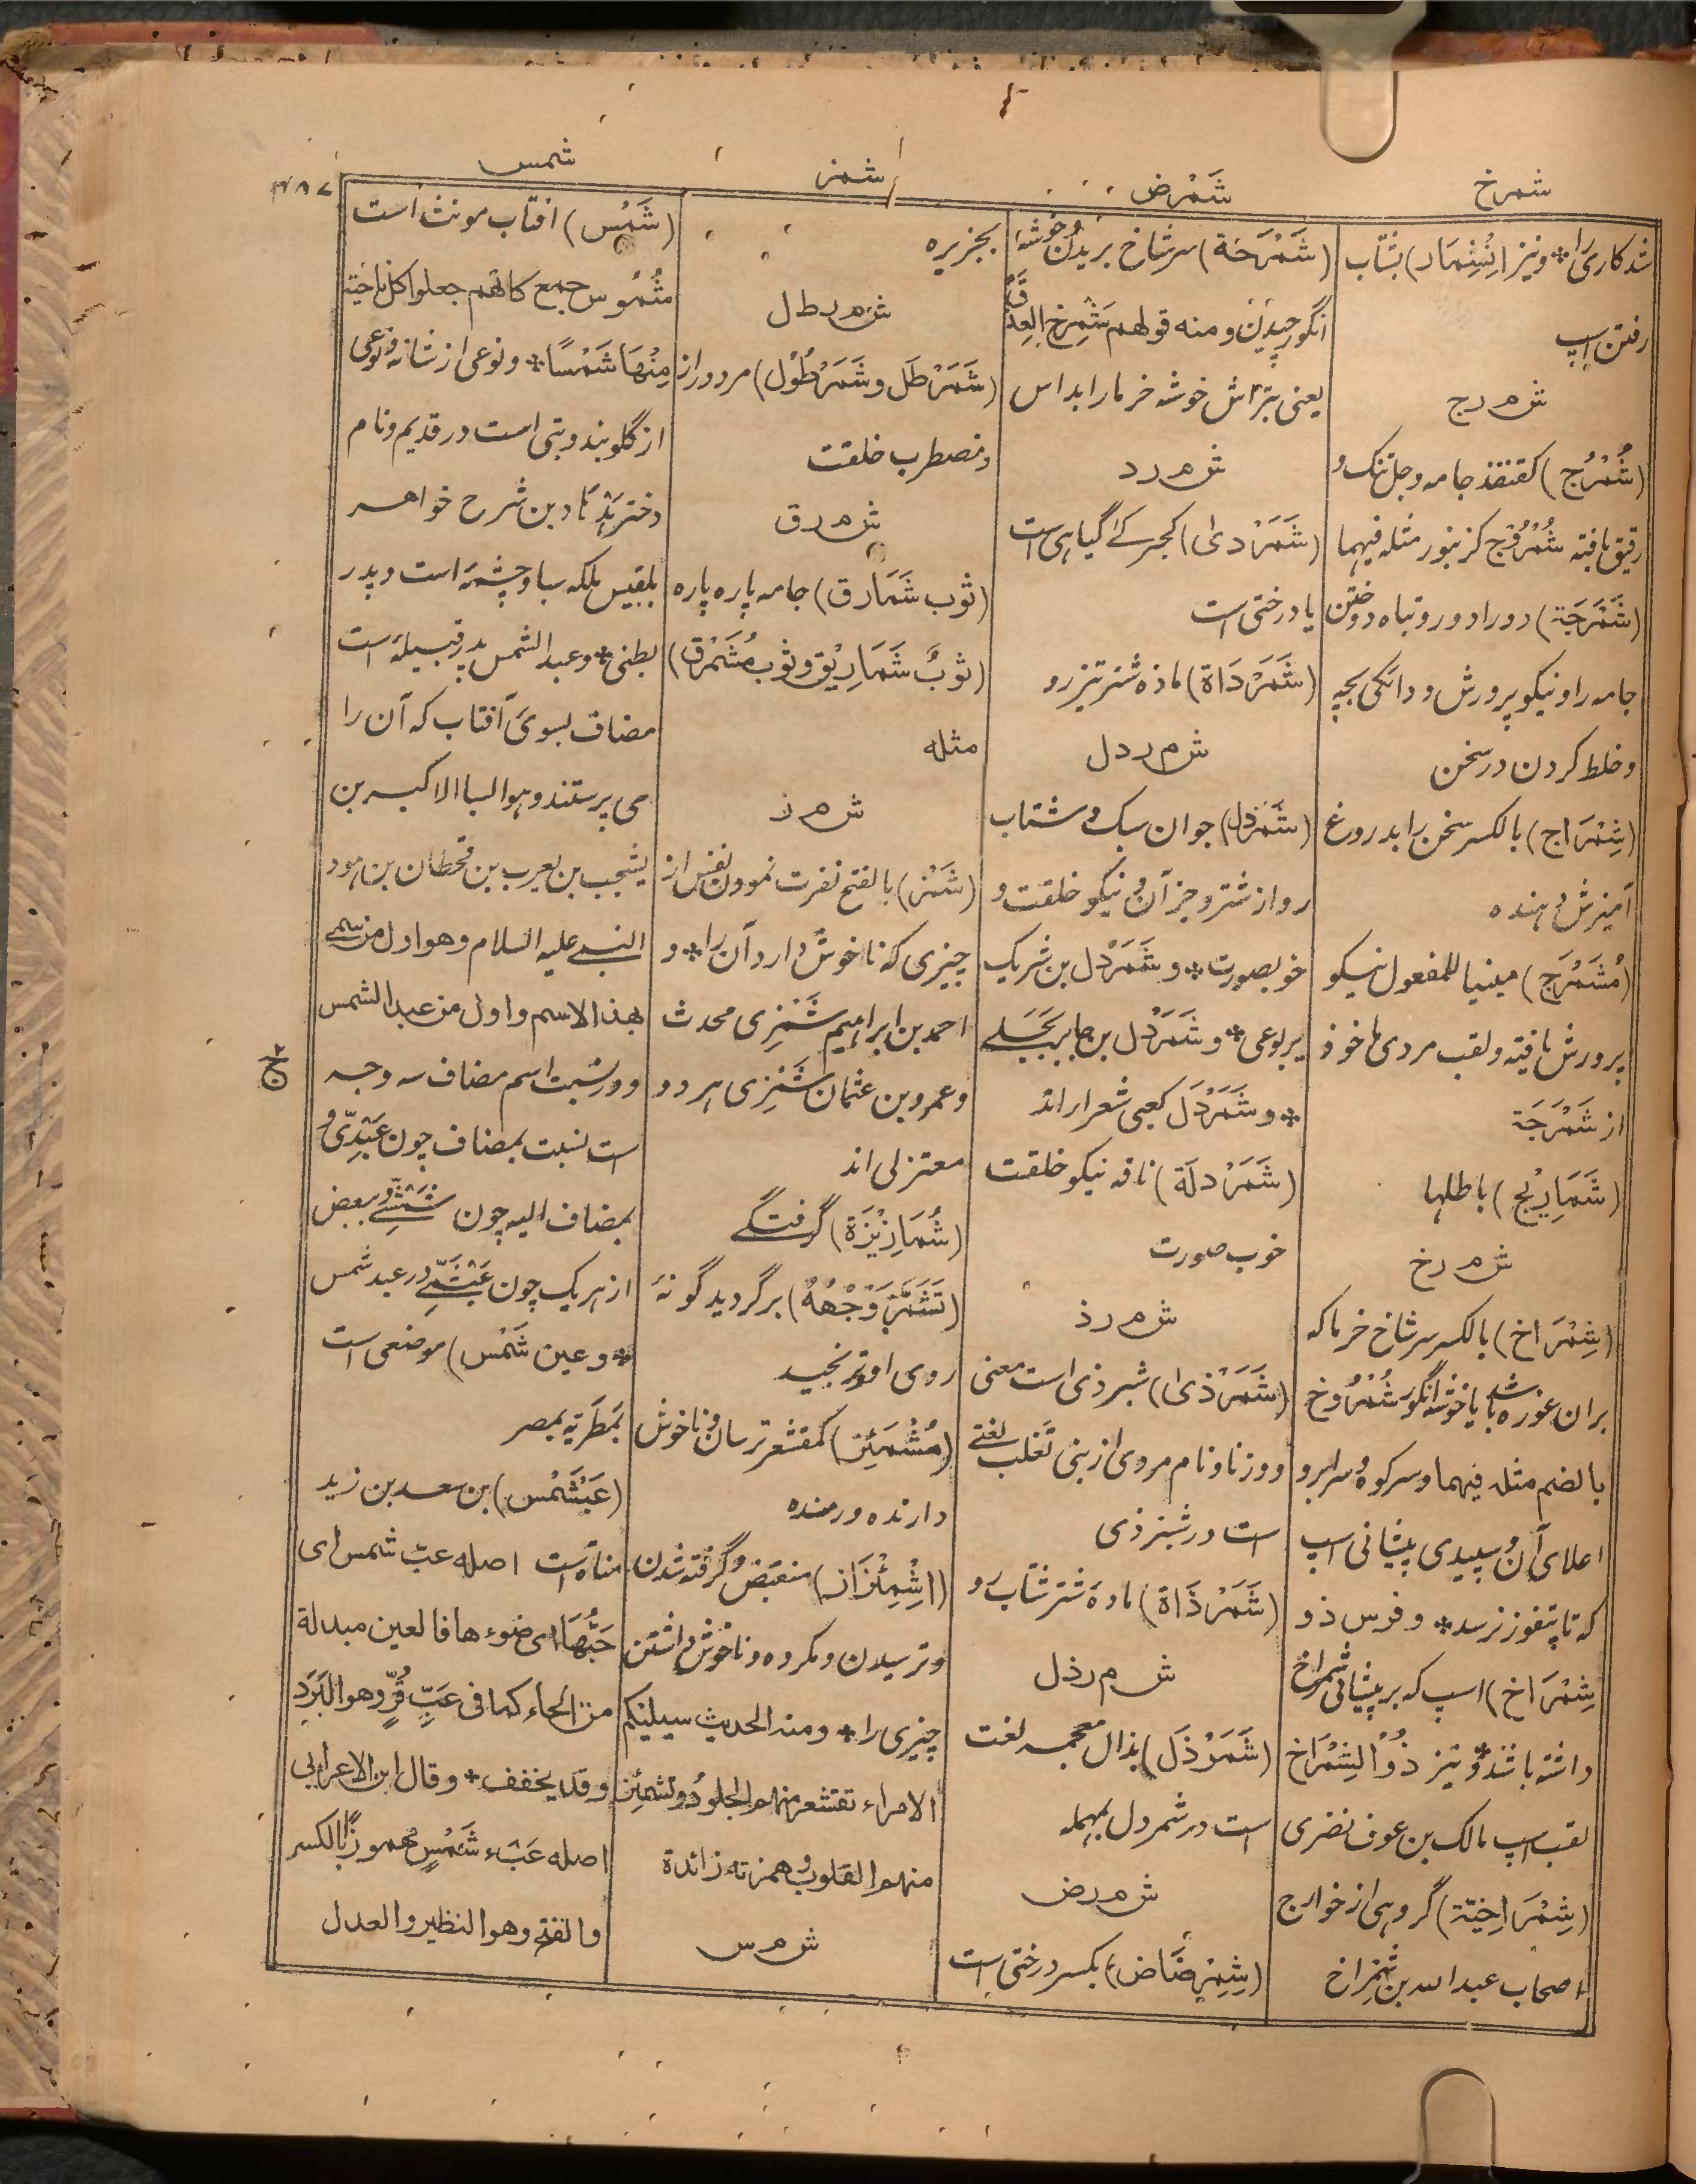 شمرخ
شمرض
شمز
شمس
شد کاری را * و نیز (اِنْشِمَار) بشتاب
رفتن اسپ
ش م ر ج
(شُمْرُج) کقنفذ جامه و جل تنک و
رقیق بافته شُمْرُوْج کزنبور مثله فیهما
(شَمْرَجَة) دورادور و تباه دوختن
جامه را و نیکو پرورش و دانگی بچه
و خلط کردن در سخن
(شِمْرَاج) بالکسر سخن را بدروغ
آمیزش دهنده
(مُشَمْرَج) مبنیا للمفعول نیکو
پرورش یافته و لقب مردی ماخوذ
از شَمْرَجَة
(شَمَارِیْج) باطلها
ش م ر خ
(شِمْرَاخ) بالکسر سر شاخ خرما که
بران غوره باشد یا خوشه انگور شُمْرُوخ
بالضم مثله فیهما و سر کوه و سر ابرو
اعلای آن و سپیدی پیشانی اسپ
که تا پتفوز نرسد * و فرس ذو
شِمْرَاخ) اسپ که بر پیشانی شمراخ
داشته باشد * و نیز ذُوْ الشِمْرَاخ
لقب اسپ مالک بن عوف نضری
(شِمْرَاخِیَّة) گروهی از خوارج
اصحاب عبد الله بن شِمْرَاخ
(شَمْرَخَة) سر شاخ بریدن خوشهٔ
انگور چیدن و منه قولهم شَمْرِخِ العِذْقَ
یعنی بتراش خوشه خرما را بداس
ش م ر د
(شَمَرْدیٰ) کحجرکے گیاہی است
یا درختی است
(شَمَرْدَاة) ماده شتر تیز رو
ش م ر د ل
(شَمَرْدَل) جوان سبک و شتاب
رو از شتر و جز آن و نیکو خلقت و
خوبصورت * و شَمَرْدَل بن شریک
یربوعی * و شَمَرْدَل بن جابر بَجَلے
* و شَمَرْدَل کعبی شعرا اند
(شَمَرْدَلَة) ناقه نیکو خلقت
خوب صورت
ش م ر ذ
(شَمَرْذیٰ) شبرذی است معنی
و وزنا و نام مردی از بنی تَغْلِب لغتے
است در شبرذی
(شَمَرْذَاة) مادهٔ شتر شتاب رو
ش م ر ذ ل
(شَمَرْذَل) بذال معجمه لغت
است در شمردل بمهمله
ش م ر ض
(شِمِرْضَاض) بکسر درختی است
بجزیره
ش م ر ط ل
(شَمَرْطَل و شَمَرْطُوْل) مرد دراز
و مضطرب خلقت
ش م ر ق
(ثوب شَمَارق) جامه پاره پاره
(ثوبٌ شَمَارِیْق و ثوب مُشَمْرَق)
مثله
ش م ز
(شَمْز) بالفتح نفرت نمودن نفس از
چیزی که ناخوش دارد آن را * و
احمد بن ابراهیم شَمْزِی محدث
و عمرو بن عثمان شَمْزِی هر دو
معتزلی اند
(شُمَازِیْزَة) گرفتگے
(تَشَمَّزَ وَجْهُهٗ) برگردید گونهٔ
روی او و ترنجید
(مُشْمَئِز) کمقشعر ترسان و ناخوش
دارنده و رمنده
(اِشْمِئْزَاز) منقبض و گرفته شدن
و ترسیدن و مکروه و ناخوش داشتن
چیزی را * و منه الحدیث سیلیکم
الامراء تقشعر منهم الجلود و تشمئز
منهم القلوب و همزته زائدة
ش م س
(شَمْس) افتاب مونث است
شُمُوس جمع کانهم جعلوا کل ناحیة
مِنْهَا شَمْسًا * و نوعی از شانه و نوعی
از گلوبند و بتی است در قدیم و نام
دختر هَدَّاد بن شرح خواهر
بلقیس ملکه سبا و چشمه است و پدر
بطنی * و عبد الشمس پدر قبیله است
مضاف بسوی آفتاب که آن را
می پرستند و هو السبا الاکبر بن
یشجب بن یعرب بن قحطان بن هود
النبے علیه السلام و هو اول من سمے
بهذا الاسم و اول من عبد الشمس
و در نسبت اسم مضاف سه وجه
است نسبت بمضاف چون عَبْدِیّ و
بمضاف الیه چون شَمْسِیّ و ببعض
از هر یک چون عَبْشَمِیّ در عبد شمس
* و عین شَمْس) موضعی است
بمَطَرِیّه بمصر
(عَبْشَمْس) بن سعد بن زید
مناة است اصله عبّ شمس ای
حَبُّهَا ای ضوءها فالعین مبدلة
من الحاء کما فی عَبِّ قُرٍّ و هو البَرَد
و قد یخفف * و قال ابن الاعرابی
اصله عَبْء شَمْسٍ مهموزًا بالکسر
والفتح و هو النظیر والعدل